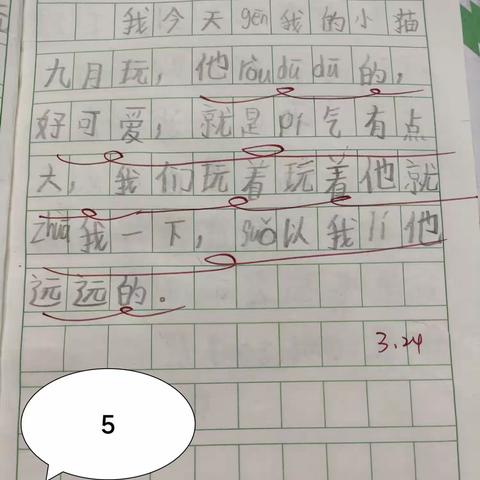 我今天gēn我的小猫
九月玩，他róudūdū的，
好可爱，就是pí气有点
大，我们玩着玩着他就
zhuā我一下，suǒ以我lí他
远远的.
3.24
5